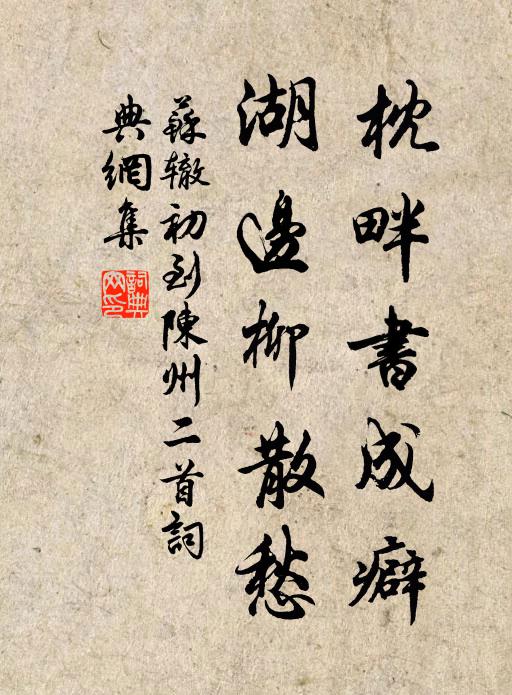 枕畔書成癖
湖邊柳散愁
蘇轍初到陳州二首詞
典網集
詞典網印